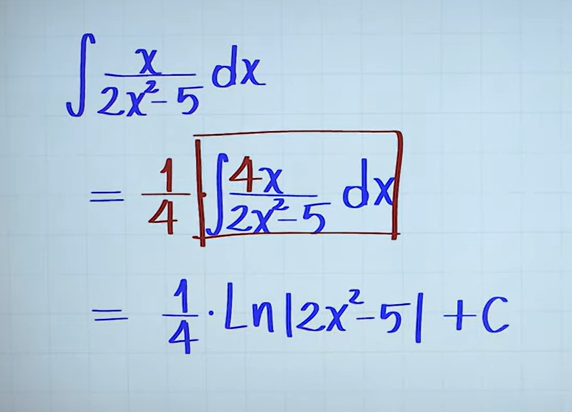 ∫ x/(2x²-5) dx
= 1/4 · ∫ 4x/(2x²-5) dx
= 1/4 · Ln|2x²-5| + C